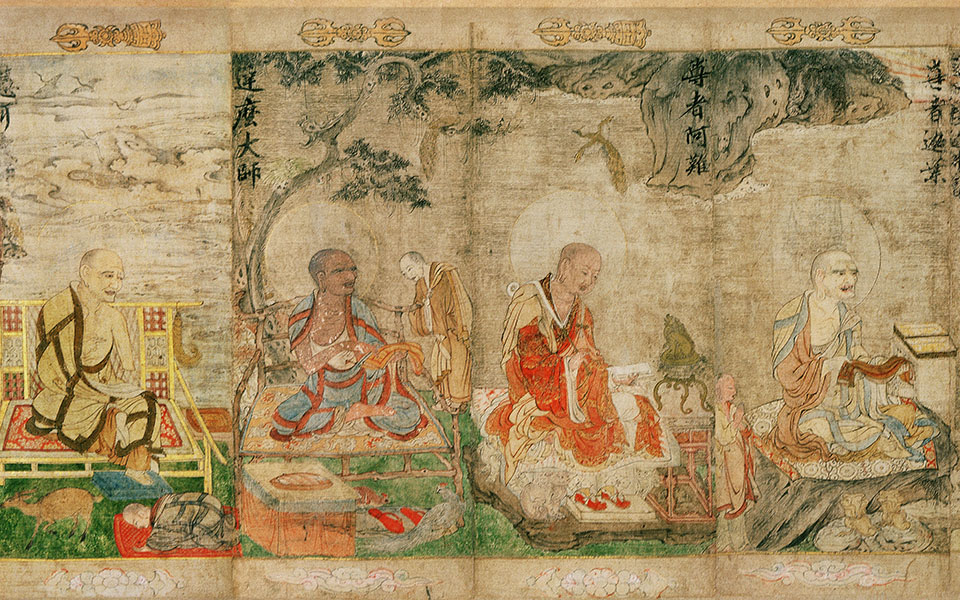 尊者迦葉
尊者阿難
達麼大師